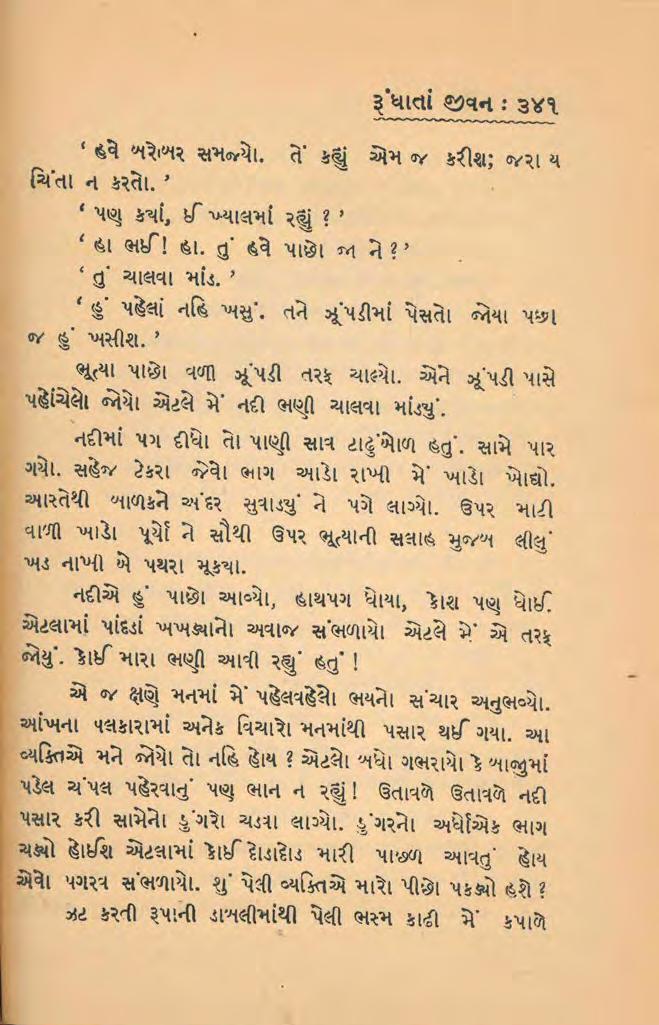 રૂંધાતાં જીવન : ૩૪૧
‘ હવે બરોબર સમજ્યો. તેં કહ્યું એમ જ કરીશ; જરા ય
ચિંતા ન કરતો. ’
‘ પણ ક્યાં, ઈ ખ્યાલમાં રહ્યું ? ’
‘ હા ભઈ! હા. તું હવે પાછો જા ને ? ’
‘ તું ચાલવા માંડ. ’
‘ હું પહેલાં નહિ ખસું. તને ઝૂંપડીમાં પેસતો જોયા પછી
જ હું ખસીશ. ’
ભૂત્યા પાછો વળી ઝૂંપડી તરફ ચાલ્યો. એને ઝૂંપડી પાસે
પહોંચેલો જોયો એટલે મેં નદી ભણી ચાલવા માંડ્યું.
નદીમાં પગ દીધો તો પાણી સાવ ટાઢુંબોળ હતું. સામે પાર
ગયો. સહેજ ટેકરા જેવો ભાગ આડો રાખી મેં ખાડો ખોદ્યો.
આસ્તેથી બાળકને અંદર સુવાડયું ને પગે લાગ્યો. ઉપર માટી
વાળી ખાડો પૂર્યો ને સૌથી ઉપર ભૂત્યાની સલાહ મુજબ લીલું
ખડ નાખી બે પથરા મૂક્યા.
નદીએ હું પાછો આવ્યો, હાથપગ ધોયા, કોશ પણ ધોઈ.
એટલામાં પાંદડાં ખખડ્યાનો અવાજ સંભળાયો એટલે મેં એ તરફ
જોયું. કોઈ મારા ભણી આવી રહ્યું હતું !
એ જ ક્ષણે મનમાં મેં પહેલવહેલો ભયનો સંચાર અનુભવ્યો.
આંખના પલકારામાં અનેક વિચારો મનમાંથી પસાર થઈ ગયા. આ
વ્યક્તિએ મને જોયો તો નહિ હોય ? એટલો બધો ગભરાયો કે બાજુમાં
પડેલ ચંપલ પહેરવાનું પણ ભાન ન રહ્યું ! ઉતાવળે ઉતાવળે નદી
પસાર કરી સામેનો ડુંગરો ચડવા લાગ્યો. ડુંગરનો અર્ધોએક ભાગ
ચડ્યો હોઈશ એટલામાં કોઈ દોડાદોડ મારી પાછળ આવતું હોય
એવો પગરવ સંભળાયો. શું પેલી વ્યક્તિએ મારો પીછો પકડ્યો હશે ?
ઝટ કરતી રૂપાની ડાબલીમાંથી પેલી ભસ્મ કાઢી મેં કપાળે